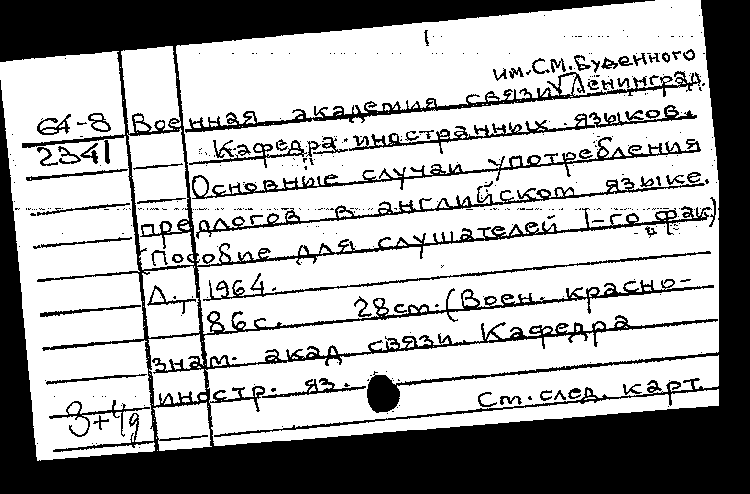 1
им. С.М. Буденного
64-8 Военная академия связи √ Ленинград
2341 Кафедра иностранных языков.
Основные случаи употребления
предлогов в английском языке.
(Пособие для слушателей 1-го фак)
Л., 1964.
86 с. 28 см. (Воен. красно-
знам. акад связи. Кафедра
иностр. яз.
3+4д См. след. карт.